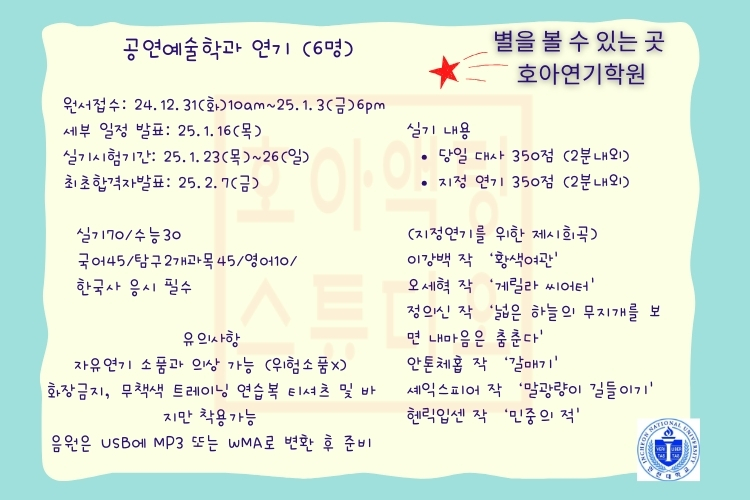 공연예술학과 연기 (6명)
별을 볼 수 있는 곳
호아연기학원
원서접수: 24.12.31(화)10am~25.1.3(금)6pm
세부 일정 발표: 25.1.16(목)
실기시험기간: 25.1.23(목)~26(일)
최초합격자발표: 25.2.7(금)
실기70/수능30
국어45/탐구2개과목45/영어10/
한국사 응시 필수
유의사항
자유연기 소품과 의상 가능 (위험소품x)
화장금지, 무책색 트레이닝 연습복 티셔츠 및 바
지만 착용가능
음원은 USB에 MP3 또는 WMA로 변환 후 준비
실기 내용
• 당일 대사 350점 (2분내외)
• 지정 연기 350점 (2분내외)
(지정연기를 위한 제시희곡)
이강백 작 '황색여관'
오세혁 작 '게릴라 씨어터'
정의신 작 '넓은 하늘의 무지개를 보
면 내마음은 춤춘다'
안톤체홉 작 '갈매기'
셰익스피어 작 '말괄량이 길들이기'
헨릭입센 작 '민중의 적'
호아액팅
스튜디오
INCHEON NATIONAL UNIVERSITY
인천대학교